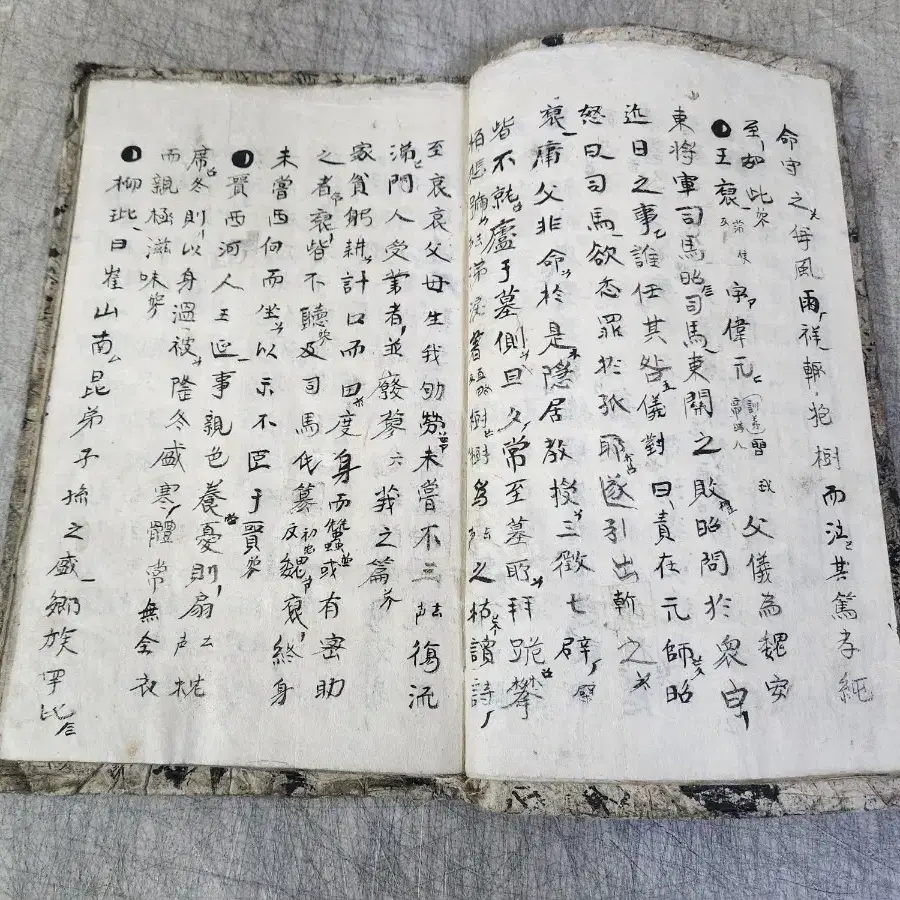 命守之每風雨祥輒抱樹而泣其篤孝純
至如此
王裒字偉元父儀為魏安
東將軍司馬昭司馬東關之敗昭問於衆曰
近日之事誰任其咎儀對曰責在元師昭
怒曰司馬欲悉罪於孤耶遂引出斬之
裒痛父非命於是隱居教授三徵七辟
皆不就廬于墓側旦夕常至墓所拜跪攀
號涕淚著樹樹為之枯讀詩
至哀哀父母生我劬勞未嘗不三復流
涕門人受業者並廢蓼莪之篇
家貧躬耕計口而田度身而蠶或有密助
之者裒皆不聽及司馬代篡魏裒終身
未嘗西向而坐以示不臣于晉
晉西河人王延事親色養憂則扇枕
席冬則以身溫被隆冬盛寒體常無全衣
而親極滋味
柳玭曰崔山南昆弟子孫之盛鄉族罕比